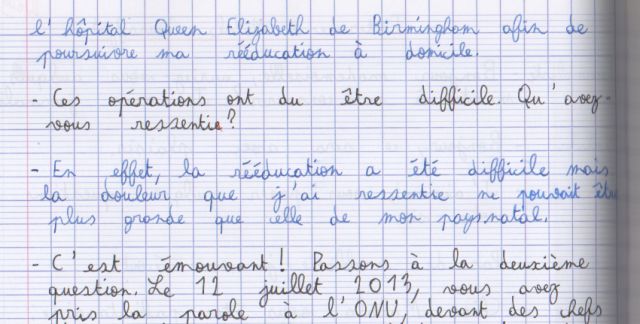 l'hôpital Queen Elizabeth de Birmingham afin de
poursuivre ma rééducation à domicile.
- Ces opérations ont du être difficile. Qu'avez-
vous ressentie?
- En effet, la rééducation a été difficile mais
la douleur que j'ai ressentie ne pouvait être
plus grande que celle de mon pays natal.
- C'est émouvant! Passons à la deuxième
question. Le 12 juillet 2013, vous avez
pris la parole à l'ONU, devant des chefs